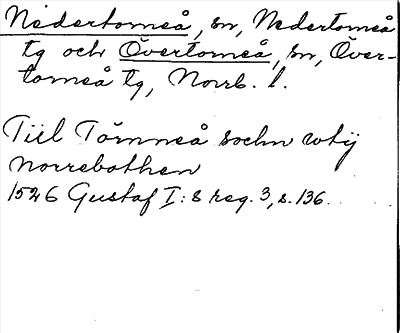 Nedertorneå, sn, Nedertorneå
tg och Övertorneå, sn, Över-
torneå tg, Norrb. l.
Till Törnneå sochn wtij
Norrebothen
1526 Gustaf I:s reg. 3, s. 136.